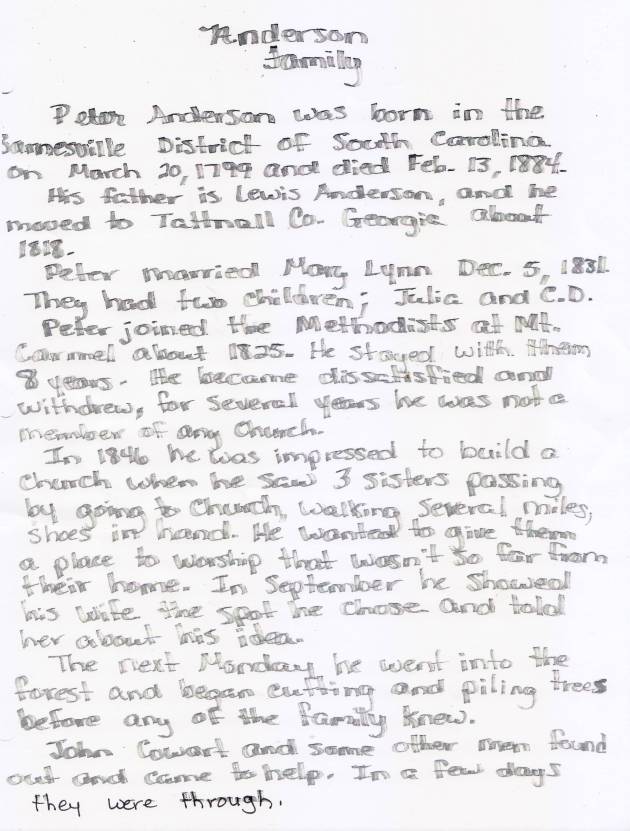 Anderson
Family
Peter Anderson was born in the
Barnesville District of South Carolina
on March 20, 1799 and died Feb. 13, 1884.
His father is Lewis Anderson, and he
moved to Tattnall Co. Georgia about
1818.
Peter married Mary Lynn Dec. 5, 1831.
They had two children; Julia and C.D.
Peter joined the Methodists at Mt.
Carmel about 1825. He stayed with them
8 years. He became dissatisfied and
withdrew, for several years he was not a
member of any Church.
In 1846 he was impressed to build a
Church when he saw 3 sisters passing
by going to Church, walking several miles,
shoes in hand. He wanted to give them
a place to worship that wasn't so far from
their home. In September he showed
his wife the spot he chose and told
her about his idea.
The next Monday he went into the
forest and began cutting and piling trees
before any of the family knew.
John Cowart and some other men found
out and came to help. In a few days
they were through.